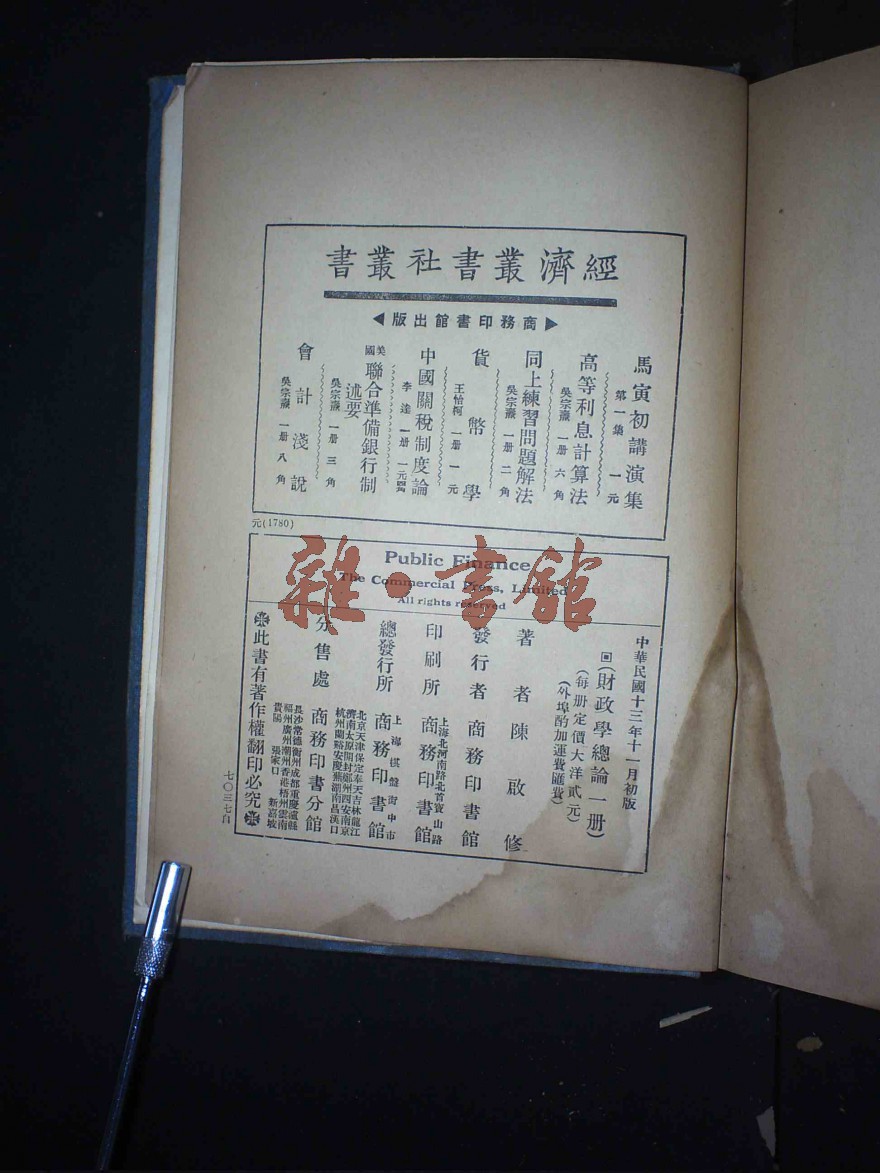 經濟叢書社叢書
商務印書館出版
馬寅初講演集
第一集 一元
高等利息計算法
吳宗燾 一册 六角
同上練習問題解法
吳宗燾 一册 二角
貨幣學
王怡柯 一册 一元
中國關稅制度論
李達 一册 一元
美國聯合準備銀行制述要
吳宗燾 一册 三角
會計淺說
吳宗燾 一册 八角
元(1780)
Public Finance
The Commercial Press, Limited
All rights reserved
中華民國十三年十一月初版
(財政學總論一册)
(每册定價大洋貳元)
(外埠酌加運費匯費)
著者 陳啟修
發行者 商務印書館
印刷所 上海北河南路北首寶山路 商務印書館
總發行所 上海棋盤街中市 商務印書館
分售處 北京天津保定奉天吉林龍江
濟南太原開封鄭州西安南京
杭州蘭谿安慶蕪湖南昌漢口
商務印書分館
長沙常德衡州成都重慶瀘縣
福州廣州潮州香港梧州雲南
貴陽 張家口 新嘉坡
此書有著作權翻印必究
七〇三七自
雜·書館